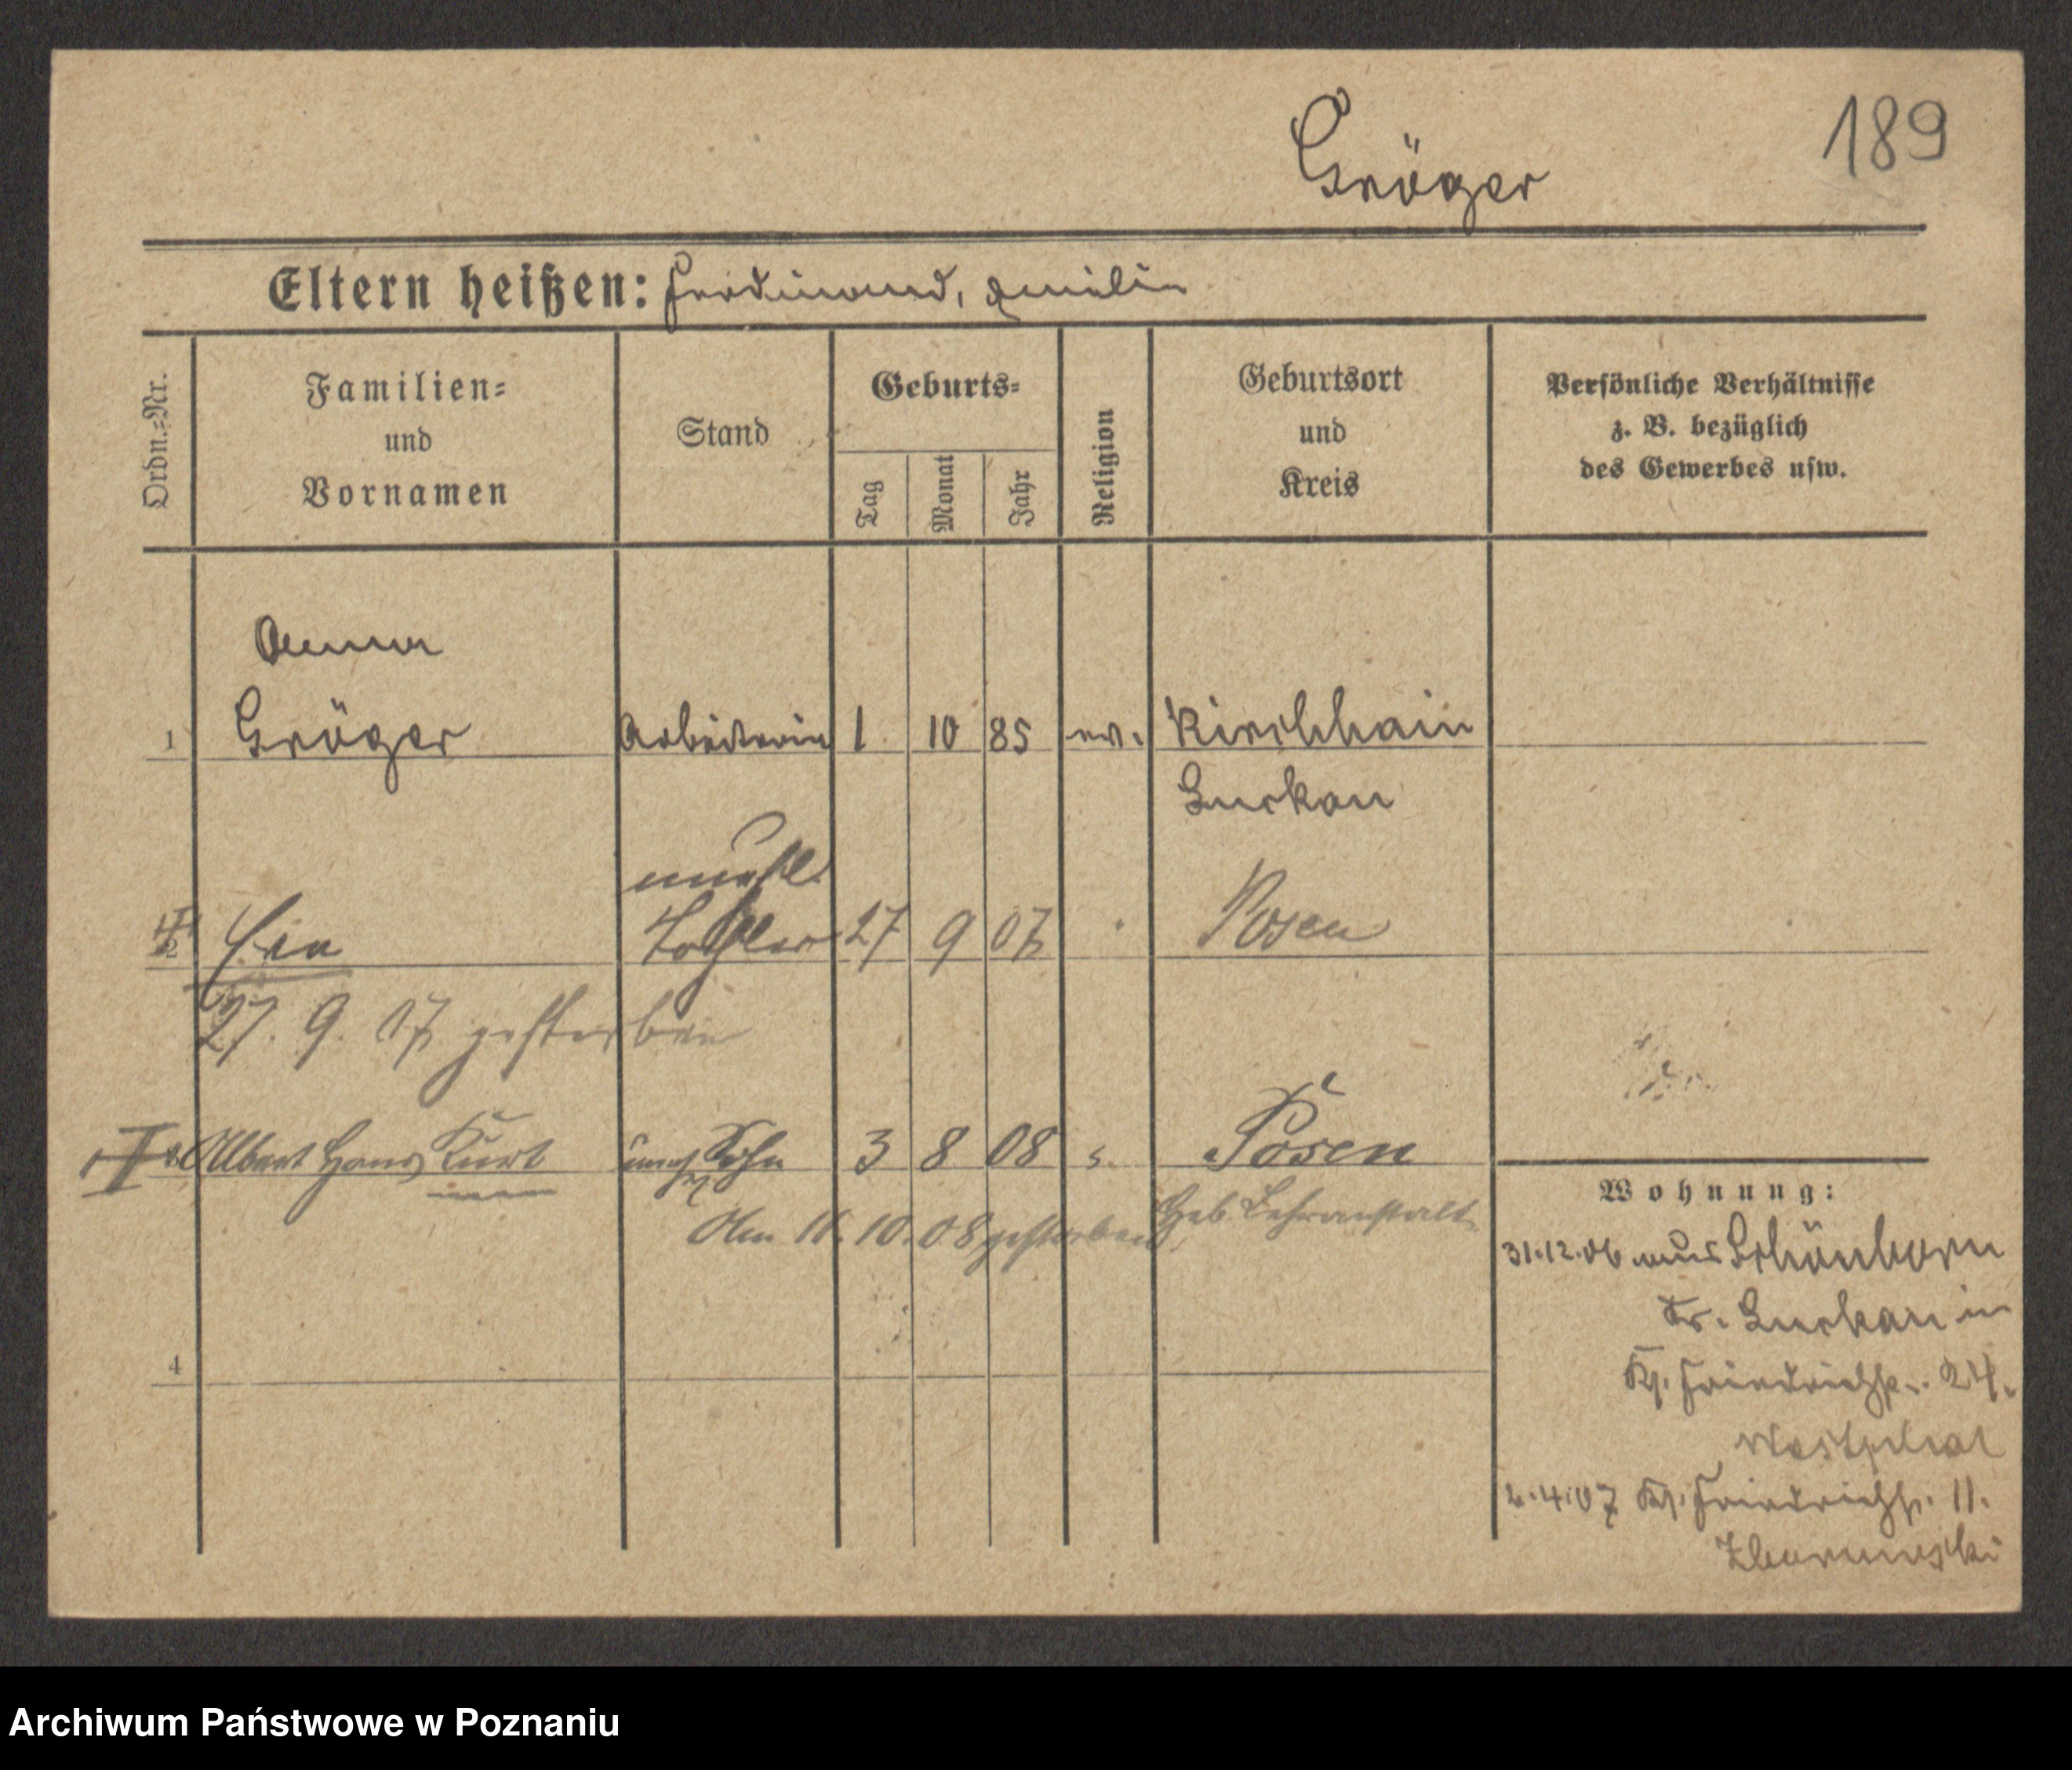 189
Gröger
Eltern heißen: Ferdinand, Emilie
Ordn.=Nr.
Familien=
und
Vornamen
Stand
Geburts=
Tag
Monat
Jahr
Religion
Geburtsort
und
Kreis
Persönliche Verhältnisse
z. B. bezüglich
des Gewerbes usw.
Anna
1 Gröger Arbeiterin 1 10 85 ev. Kirchhain
Luckau
unehl.
2 Eva Tochter 27 9 07 Posen
27. 9. 07 gestorben
Albert Hans Kurt Sohn 3 8 08 Posen
Am 11. 10. 08 gestorben Heb. Lehranstalt
Wohnung:
31.12.06 aus Schönborn
Kr. Luckau in
Friedrichstr. 24.
Westphal
2.4.07 Friedrichstr. 11.
4
Archiwum Państwowe w Poznaniu